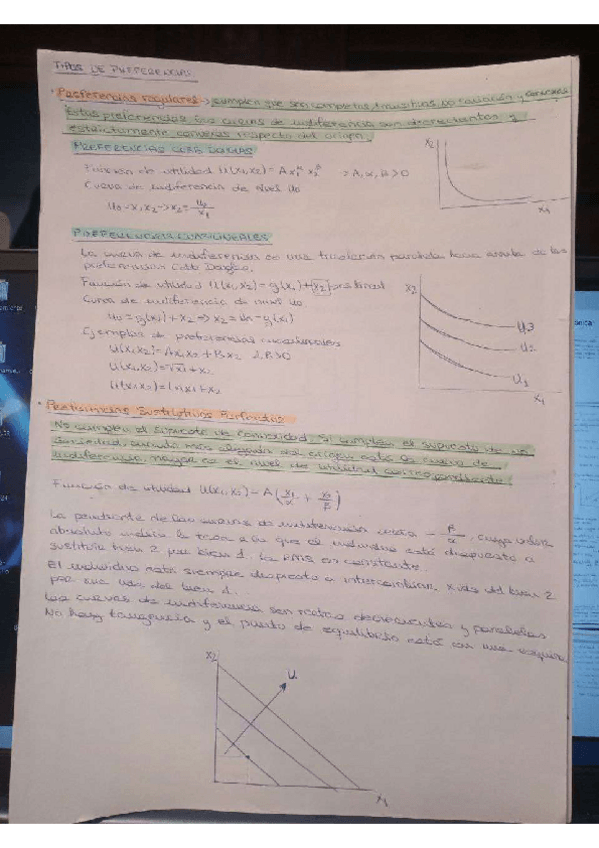 TIPOS DE PREFERENCIAS
· Preferencias regulares → cumplen que son completas, transitivas, no saciación y
Estas preferencias sus curvas de indiferencia son decrecientes y
estrictamente convexas respecto del origen.
PREFERENCIAS COBB DOUGLAS
Función de utilidad U(x1,x2) = A x1^α x2^β = A, α, β > 0
Curva de indiferencia de nivel U0
U0 = x1 x2 → x2 = U0/x1
x2
x1
PREFERENCIAS CUASILINEALES
La curva de indiferencia es una traslación paralela hacia arriba de las
preferencias Cobb Douglas.
Función de utilidad U(x1,x2) = g(x1) + x2
Curva de indiferencia de nivel U0
U0 = g(x1) + x2 ⇒ x2 = U0 - g(x1)
Ejemplos de preferencias cuasilineales
x2
U3
U2
U1
x1
U(x1,x2) = √x1 + x2
U(x1,x2) = ln x1 + x2
· Preferencias Sustitutivos Perfectos
No cumplen el supuesto de convexidad. Sí cumplen el supuesto de no
saciedad, cuanto más alejada del origen esté la curva de
indiferencia, mayor es el nivel de utilidad
Función de utilidad U(x1,x2) = A(x1/α + x2/β)
La pendiente de las curvas de indiferencia es - β/α, cuyo valor
absoluto indica la tasa a la que el individuo está dispuesto a
sustituir bien 2 por bien 1. La RMS es constante.
El individuo está siempre dispuesto a intercambiar x uds del bien 2
por una uds del bien 1.
Las curvas de indiferencia son rectas decrecientes y paralelas
No hay tangencia y el punto de equilibrio está en una esquina
x2
U
x1